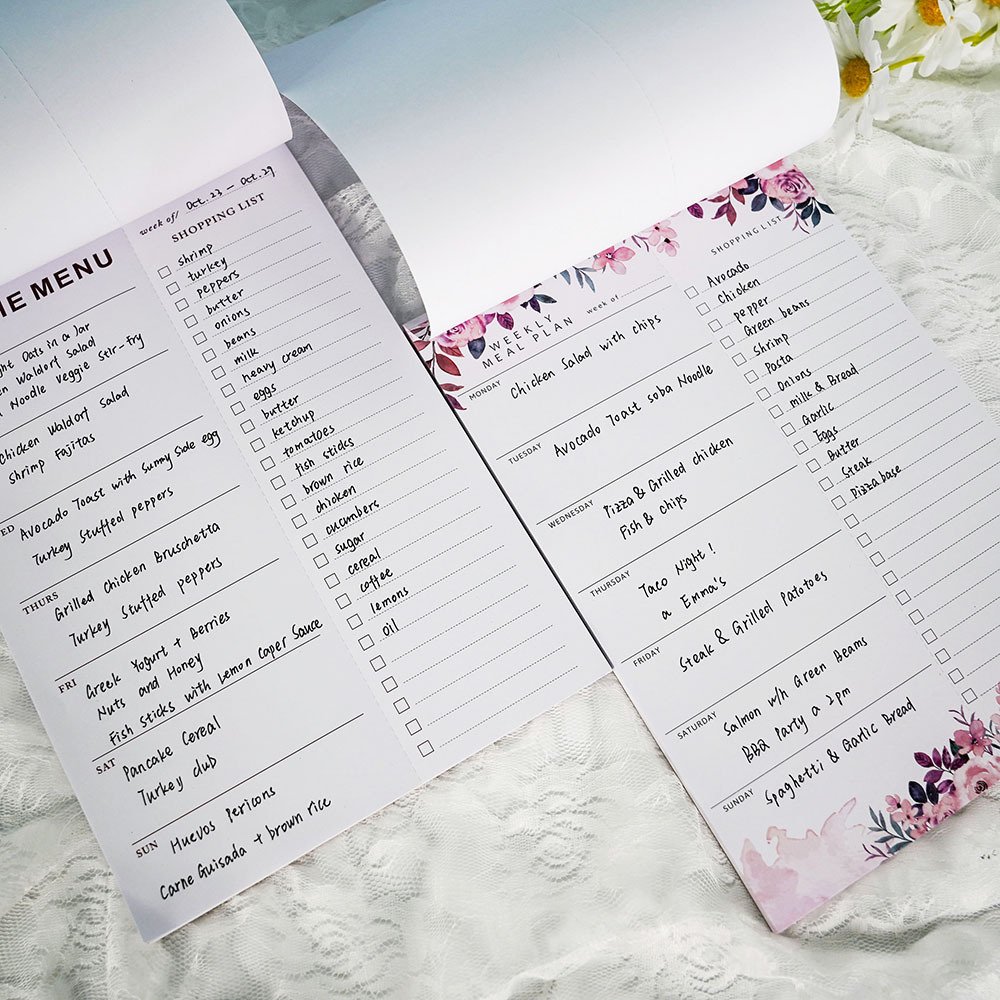 week of/ Oct. 23 – Oct. 29
SHOPPING LIST
shrimp
turkey
peppers
butter
onions
beans
milk
heavy cream
eggs
butter
ketchup
tomatoes
fish sticks
brown rice
chicken
cucumbers
sugar
cereal
coffee
lemons
oil
MENU
Oats in a Jar
Waldorf Salad
Noodle Veggie Stir-try
Chicken Waldorf Salad
Shrimp Fajitas
Avocado Toast with Sunny Side egg
Turkey Stuffed peppers
THURS
Grilled Chicken Bruschetta
Turkey Stuffed peppers
FRI
Greek Yogurt + Berries
Nuts and Honey
Fish Sticks with Lemon Caper Sauce
SAT
Pancake Cereal
Turkey club
SUN
Huevos Pericons
Carne Guisada + brown rice
WEEKLY
MEAL PLAN
week of
MONDAY
Chicken Salad with chips
TUESDAY
Avocado Toast soba Noodle
WEDNESDAY
Pizza & Grilled chicken
Fish & chips
THURSDAY
Taco Night !
a Emma's
FRIDAY
Steak & Grilled Patotoes
SATURDAY
Salmon w/h Green Beams
BBQ Party a 2pm
SUNDAY
Spaghetti & Garlic Bread
SHOPPING LIST
Avocado
Chicken
pepper
Green beans
Shrimp
Pasta
Onions
milk & Bread
Garlic
Eggs
Butter
Steak
Pizza base